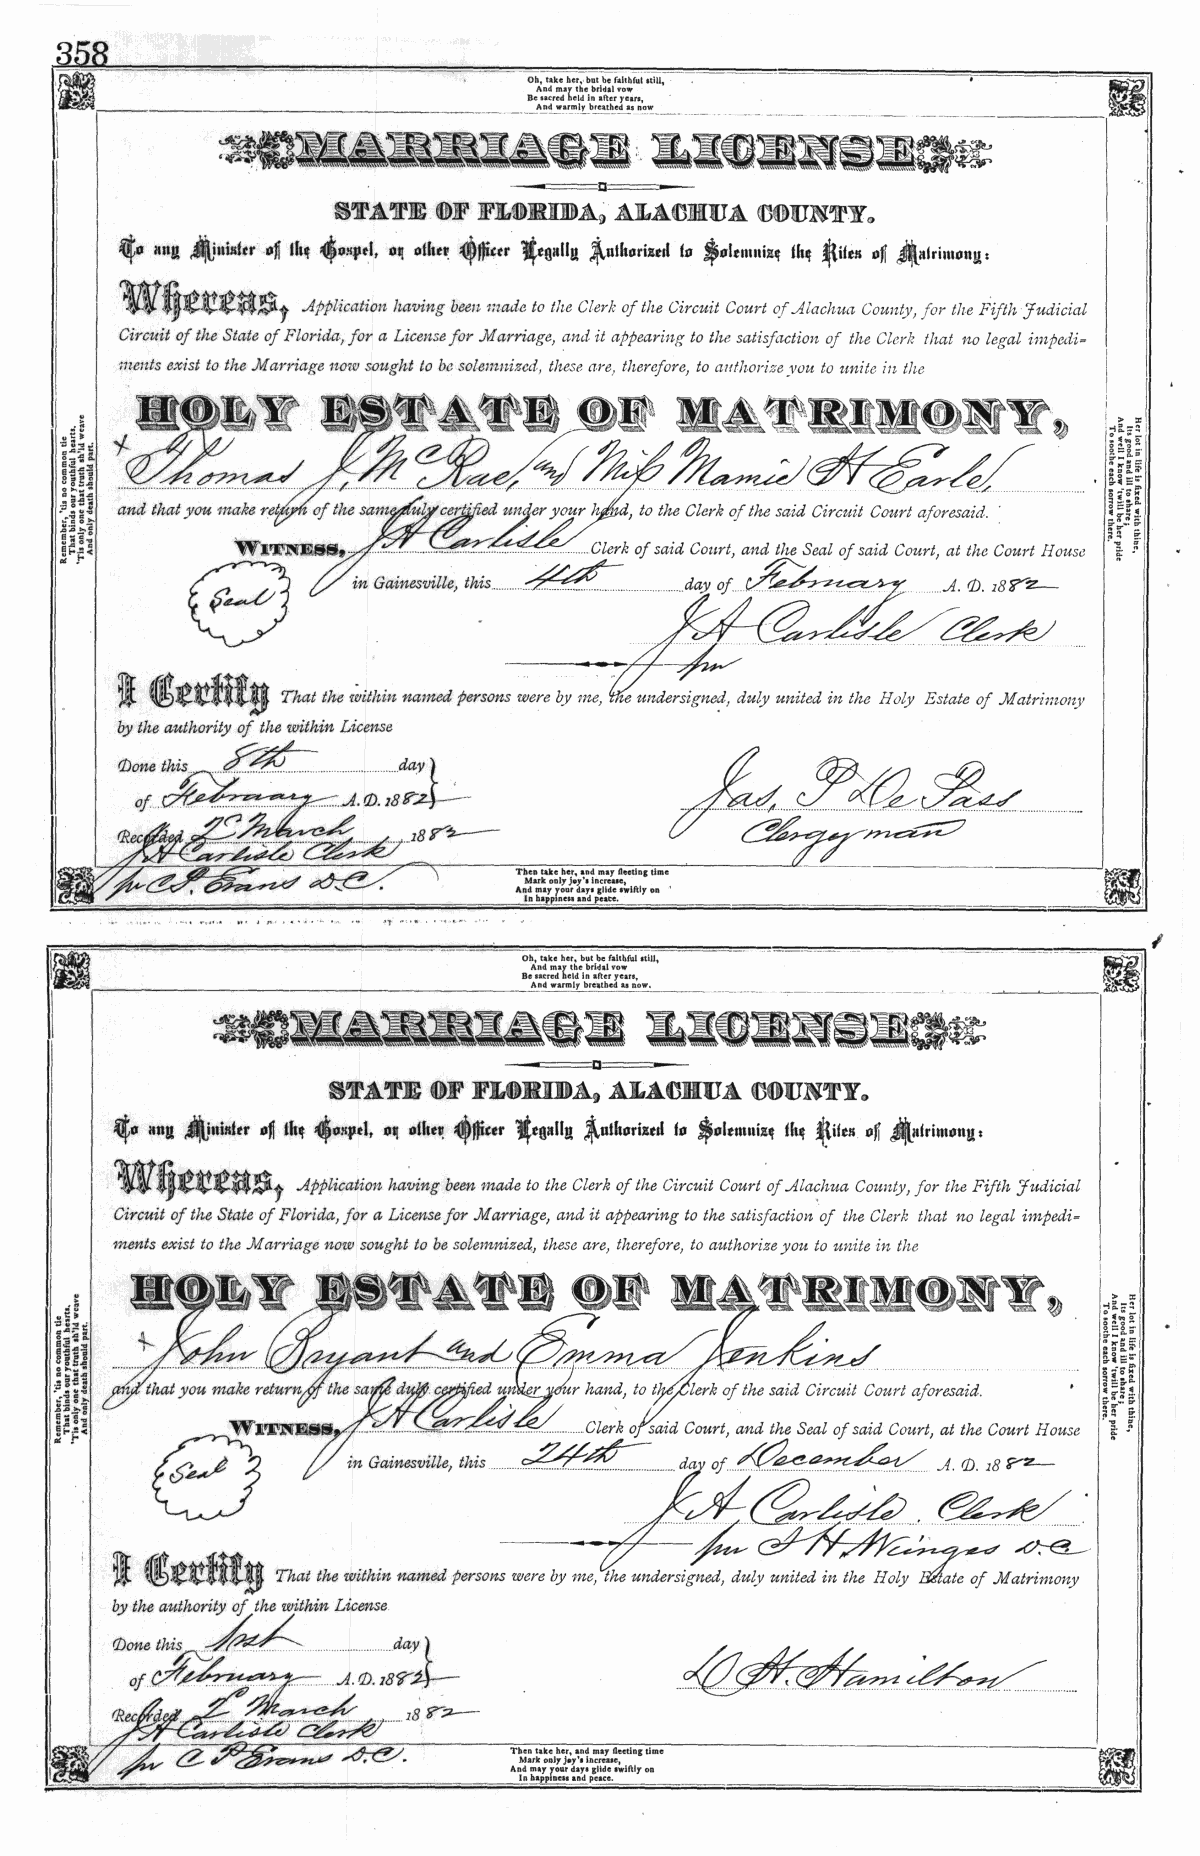 358
Oh, take her, but be faithful still,
And may the bridal vow
Be sacred held in after years,
And warmly breathed as now
MARRIAGE LICENSE
STATE OF FLORIDA, ALACHUA COUNTY.
To any Minister of the Gospel, or other Officer Legally Authorized to Solemnize the Rites of Matrimony:
Whereas, Application having been made to the Clerk of the Circuit Court of Alachua County, for the Fifth Judicial
Circuit of the State of Florida, for a License for Marriage, and it appearing to the satisfaction of the Clerk that no legal impedi=
ments exist to the Marriage now sought to be solemnized, these are, therefore, to authorize you to unite in the
HOLY ESTATE OF MATRIMONY,
x Thomas J, McRae, and Miss Mamie H Earle,
and that you make return of the same duly certified under your hand, to the Clerk of the said Circuit Court aforesaid.
WITNESS, J A Carlisle Clerk of said Court, and the Seal of said Court, at the Court House
Seal
in Gainesville, this 4th day of February A. D. 1882
J A Carlisle Clerk
per
I Certify That the within named persons were by me, the undersigned, duly united in the Holy Estate of Matrimony
by the authority of the within License
Done this 8th day
of February A.D. 1882
Jas, P De Pass
Clergyman
Recorded 2d March 1882
J A Carlisle Clerk
per C P. Evans D.C.
Then take her, and may fleeting time
Mark only joy's increase,
And may your days glide swiftly on
In happiness and peace.
Remember, 'tis no common tie
That binds our youthful hearts,
'Tis only one that truth sh'ld weave
And only death should part.
Her lot in life is fixed with thine,
Its good and ill to share;
And well I know 'twill be her pride
To soothe each sorrow there.
Oh, take her, but be faithful still,
And may the bridal vow
Be sacred held in after years,
And warmly breathed as now.
MARRIAGE LICENSE
STATE OF FLORIDA, ALACHUA COUNTY.
To any Minister of the Gospel, or other Officer Legally Authorized to Solemnize the Rites of Matrimony:
Whereas, Application having been made to the Clerk of the Circuit Court of Alachua County, for the Fifth Judicial
Circuit of the State of Florida, for a License for Marriage, and it appearing to the satisfaction of the Clerk that no legal impedi=
ments exist to the Marriage now sought to be solemnized, these are, therefore, to authorize you to unite in the
HOLY ESTATE OF MATRIMONY,
x John Bryant and Emma Jenkins
and that you make return of the same duly certified under your hand, to the Clerk of the said Circuit Court aforesaid.
WITNESS, J A Carlisle Clerk of said Court, and the Seal of said Court, at the Court House
Seal
in Gainesville, this 24th day of December A. D. 1882
J A Carlisle. Clerk
per J H. D.C.
I Certify That the within named persons were by me, the undersigned, duly united in the Holy Estate of Matrimony
by the authority of the within License
Done this 1rst day
of February A.D. 1882
D H. Hamilton
Recorded 2d March 1882
J A Carlisle Clerk
per C P Evans D.C.
Then take her, and may fleeting time
Mark only joy's increase,
And may your days glide swiftly on
In happiness and peace.
Remember, 'tis no common tie
That binds our youthful hearts,
'Tis only one that truth sh'ld weave
And only death should part.
Her lot in life is fixed with thine,
Its good and ill to share;
And well I know 'twill be her pride
To soothe each sorrow there.